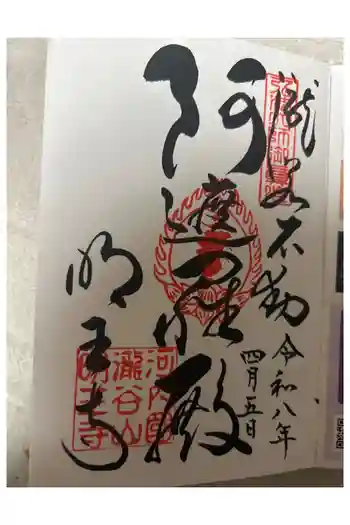 瀧谷不動
令和八年
四月五日
阿
殿
明王寺
河内國
瀧谷山
明王寺